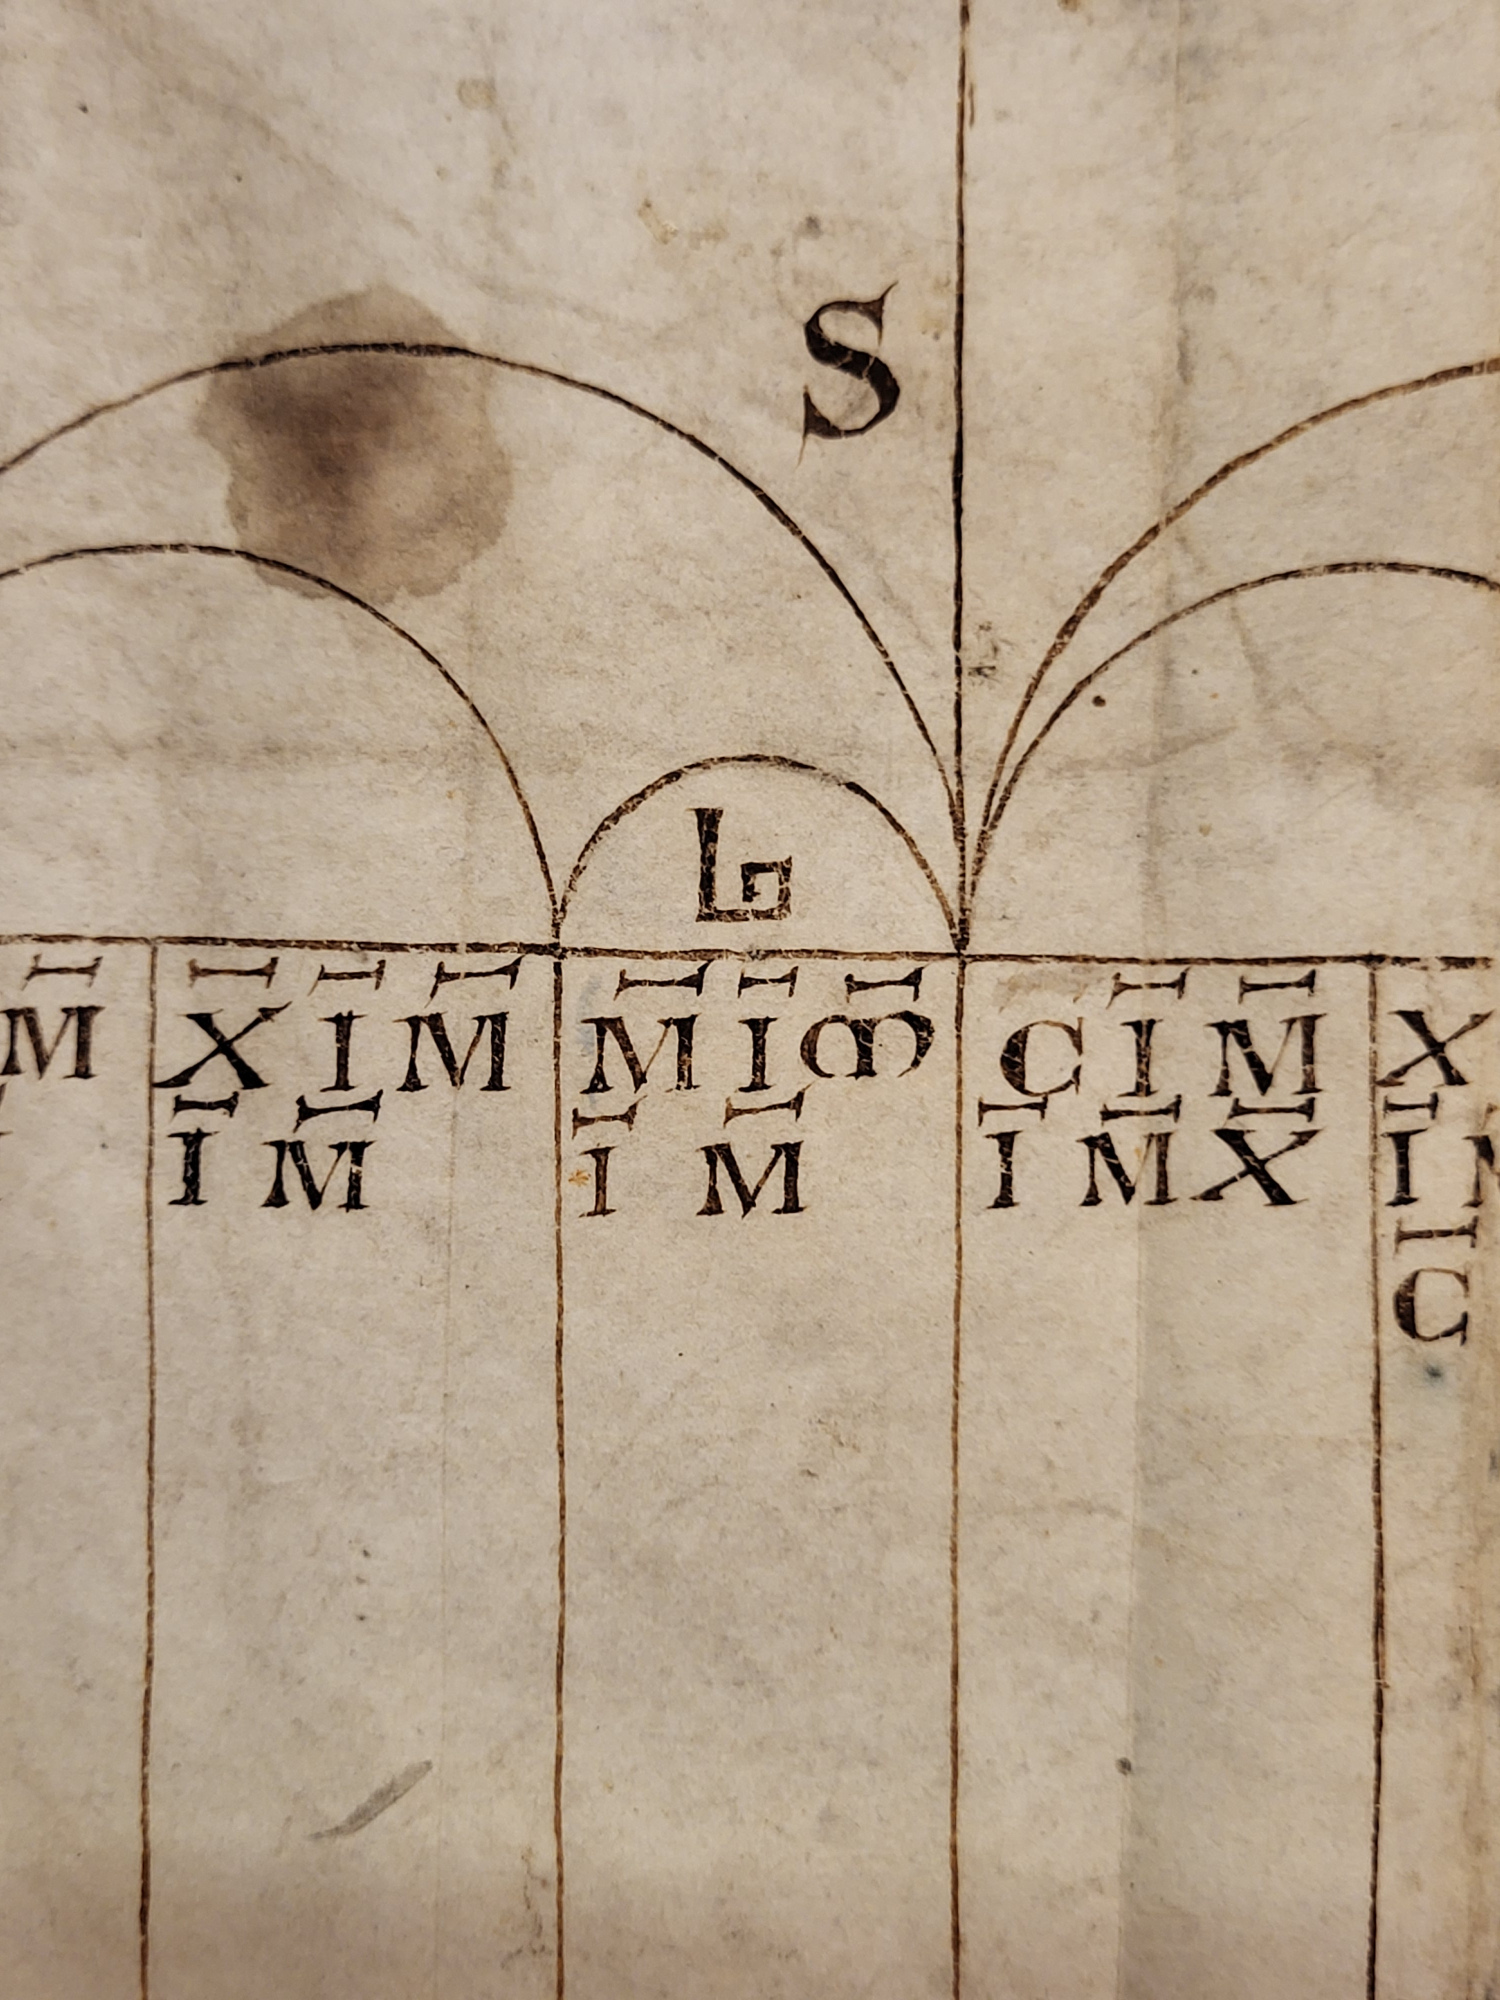 S
M̅ X̅ I̅ M̅ M̅ I̅ M̅ C I̅ M̅ X
I̅ M̅ I̅ M̅ I̅ M̅ X̅ I̅
C̅